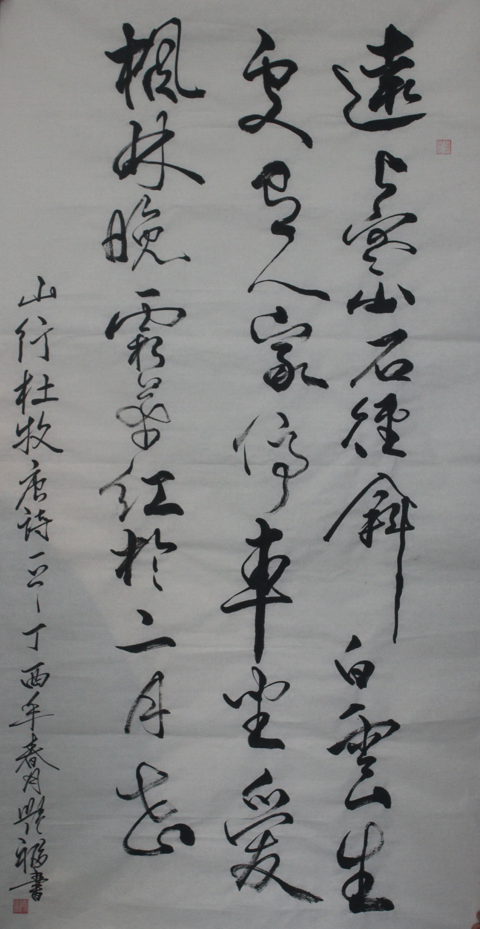 遠上寒山石徑斜白雲生
處有人家停車坐愛
楓林晚霜葉紅於二月花
山行杜牧唐詩一首丁酉年春月福書